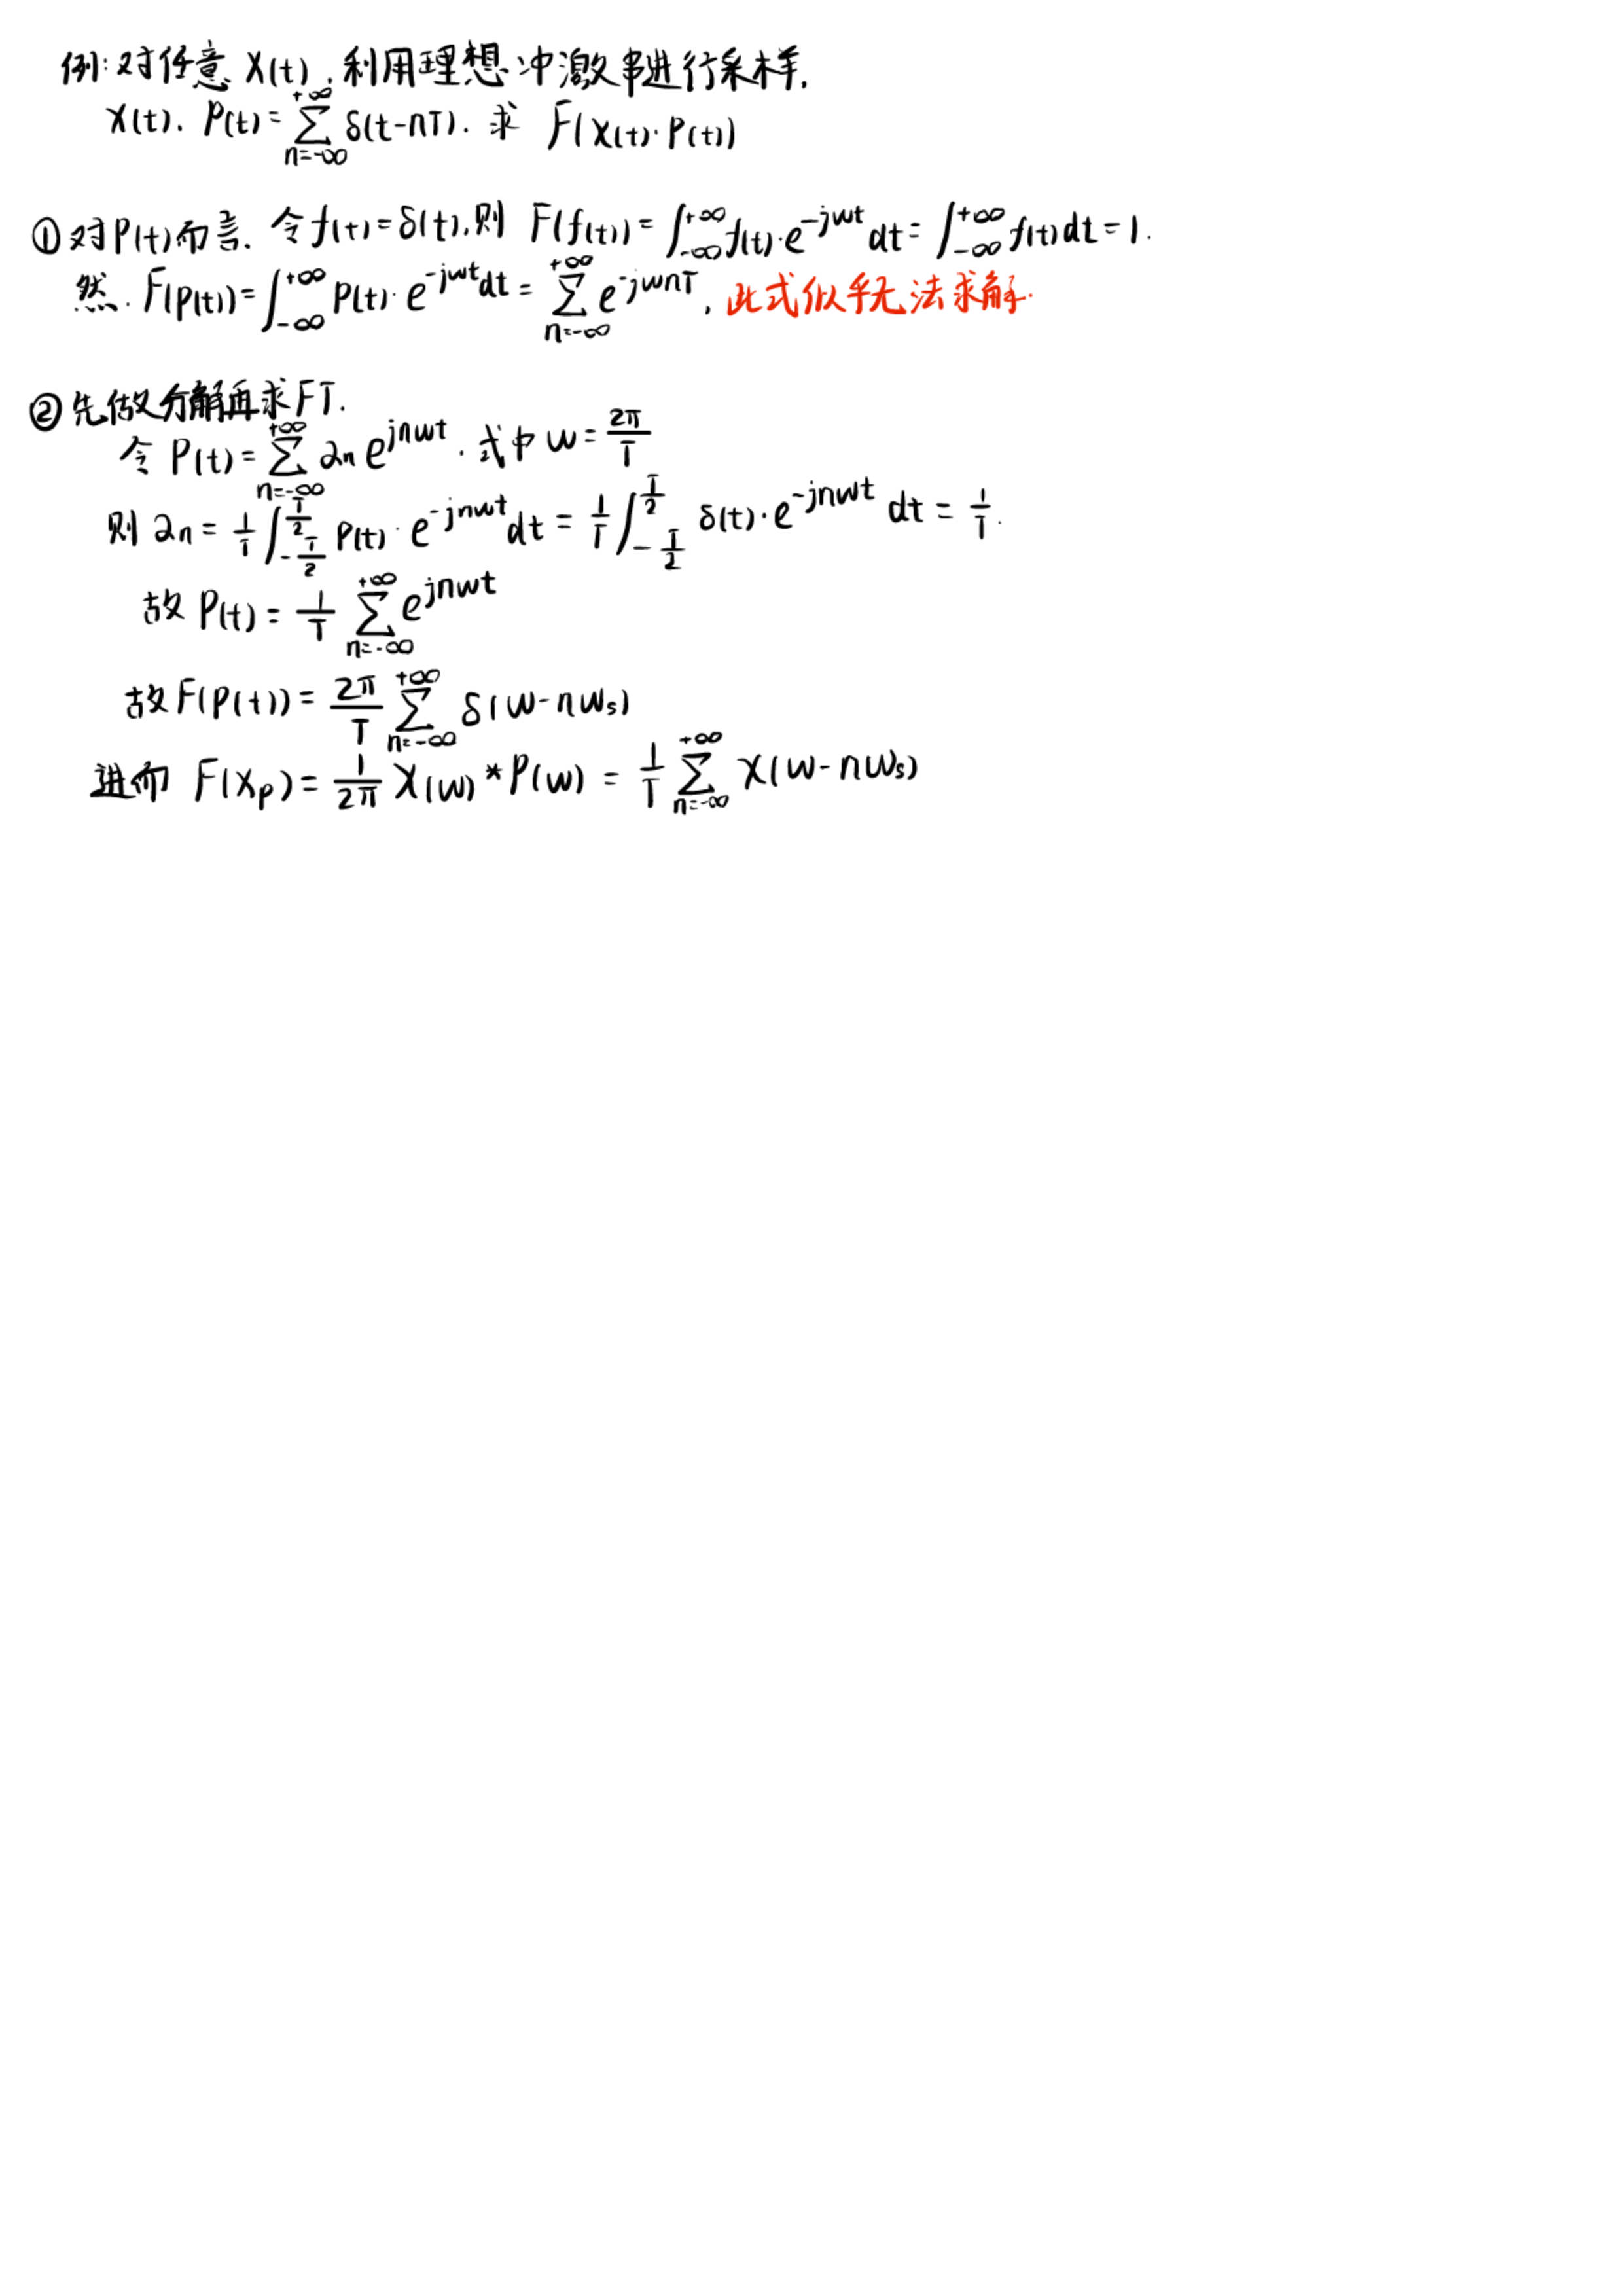 例:对任意 X(t),利用理想冲激串进行采样.
X(t). P(t)=∑_{n=-∞}^{+∞} δ(t-nT). 求 F(X(t)·P(t))
①对P(t)而言. 令f(t)=δ(t),则 F(f(t))=∫_{-∞}^{+∞} f(t)·e^{-jwt} dt=∫_{-∞}^{+∞} f(t)dt=1.
然. F(P(t))=∫_{-∞}^{+∞} P(t)·e^{-jwt}dt=∑_{n=-∞}^{+∞} e^{-jwnT}, 此式似乎无法求解.
②先做分解再求FT.
令 P(t)=∑_{n=-∞}^{+∞} a_n e^{jnwt}. 式中 w=\frac{2π}{T}
则 a_n=\frac{1}{T}∫_{-\frac{T}{2}}^{\frac{T}{2}} P(t)·e^{-jnwt}dt=\frac{1}{T}∫_{-\frac{T}{2}}^{\frac{T}{2}} δ(t)·e^{-jnwt} dt=\frac{1}{T}.
故 P(t)=\frac{1}{T}∑_{n=-∞}^{+∞} e^{jnwt}
故F(P(t))=\frac{2π}{T}∑_{n=-∞}^{+∞} δ(w-nw_s)
进而 F(X_p)=\frac{1}{2π} X(w)*P(w)=\frac{1}{T}∑_{n=-∞}^{+∞} X(w-nw_s)